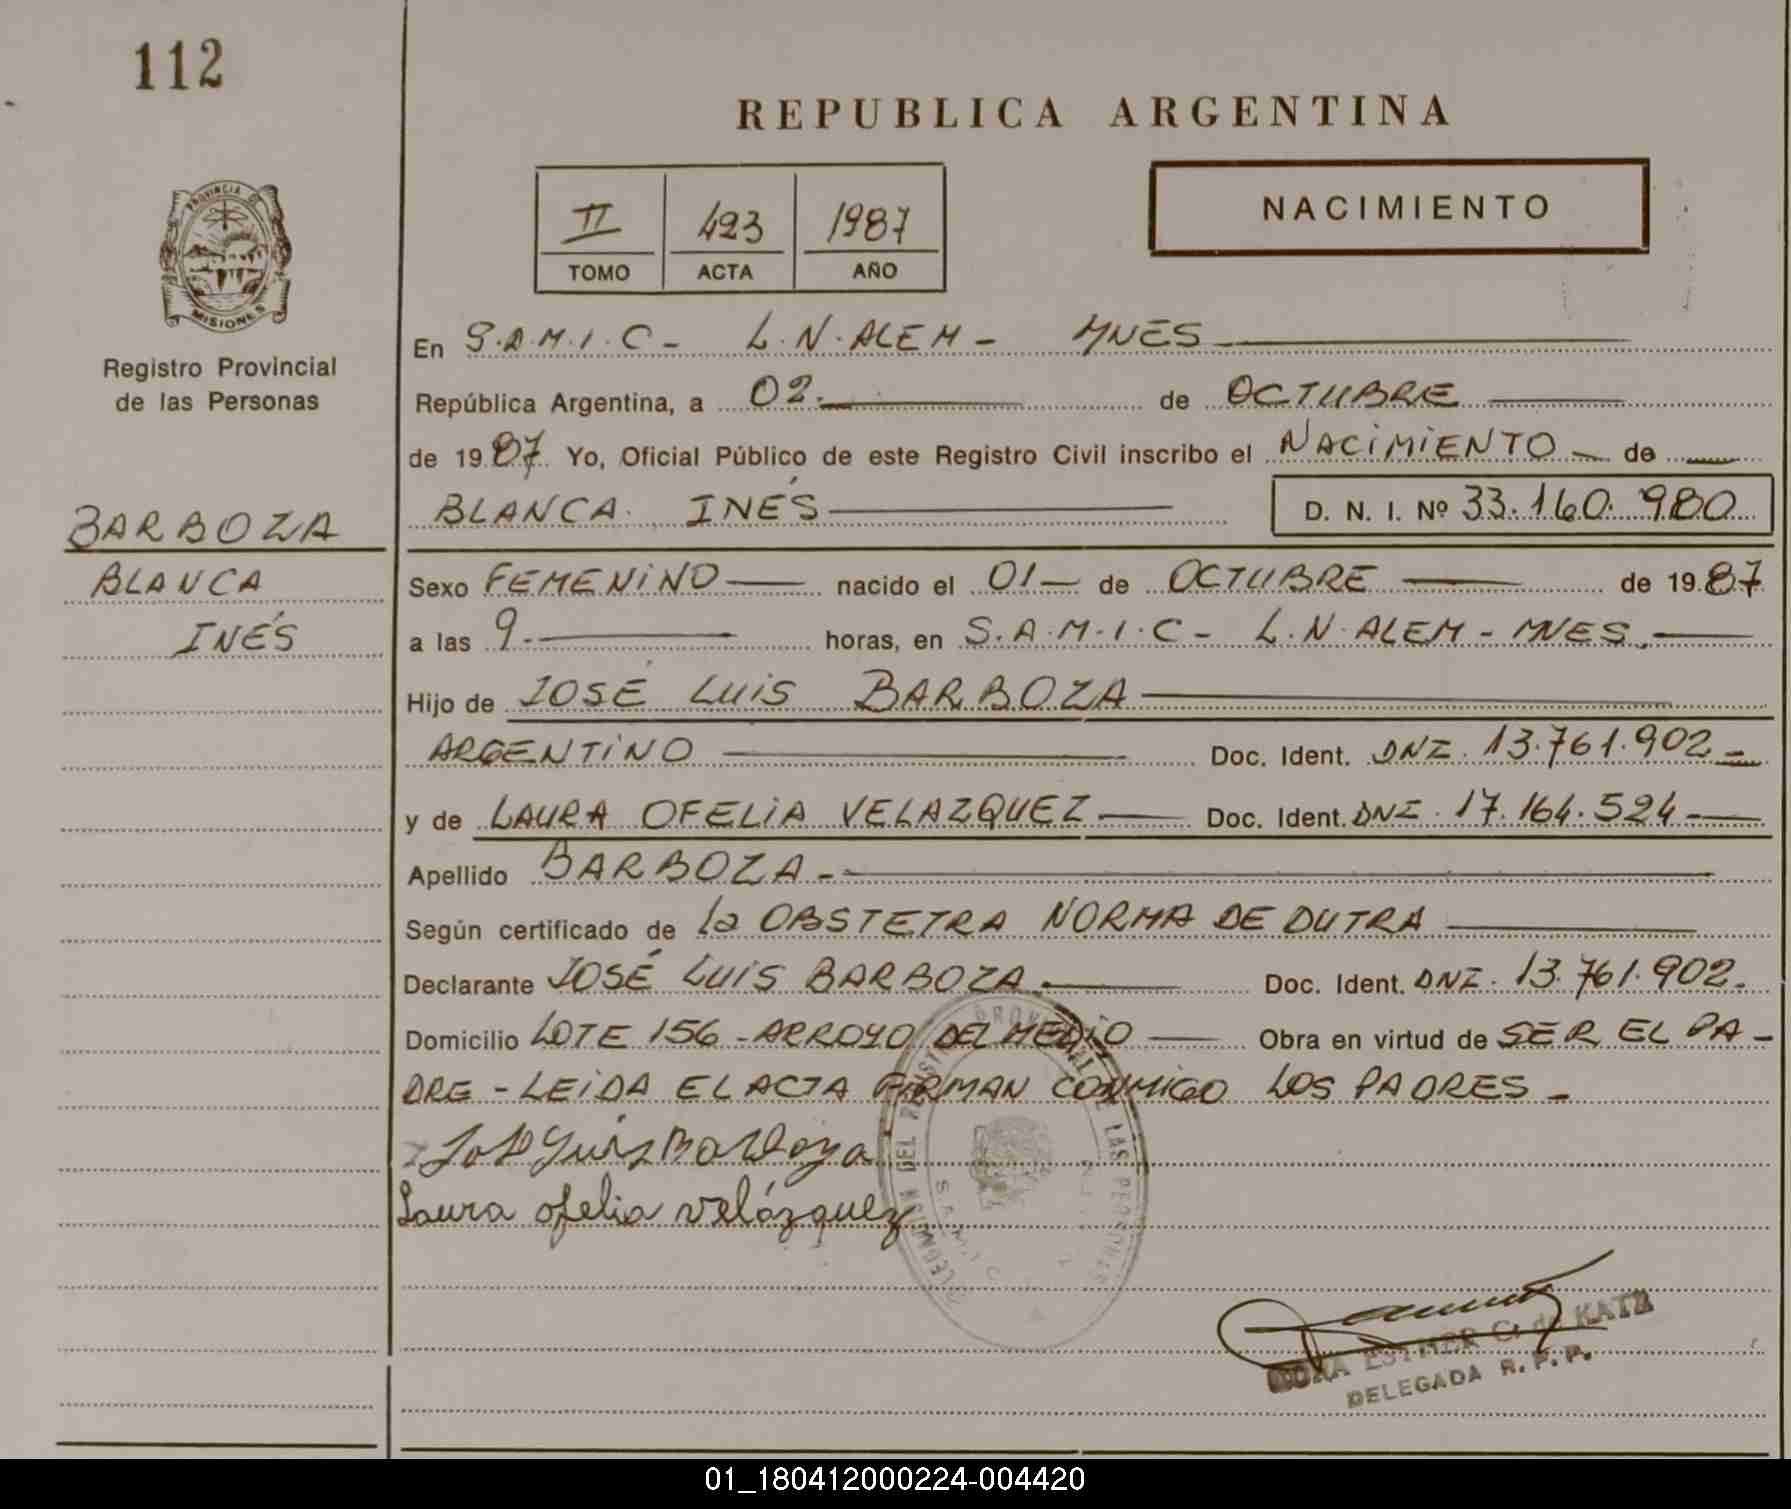 112
REPUBLICA ARGENTINA
NACIMIENTO
II 493 1987
TOMO ACTA AÑO
PROVINCIA DE
MISIONES
Registro Provincial
de las Personas
BARBOZA
BLANCA
INÉS
En S.A.M.I.C - L.N. ALEM - MNES
República Argentina, a 02. de OCTUBRE
de 1987. Yo, Oficial Público de este Registro Civil inscribo el NACIMIENTO de
BLANCA INÉS D. N. I. Nº 33.160.980
Sexo FEMENINO nacido el 01 de OCTUBRE de 1987
a las 9. horas, en S.A.M.I.C - L.N. ALEM - MNES.
Hijo de JOSÉ LUIS BARBOZA
ARGENTINO Doc. Ident. DNI. 13.761.902
y de LAURA OFELIA VELAZQUEZ Doc. Ident. DNI. 17.164.524
Apellido BARBOZA
Según certificado de la OBSTETRA NORMA DE DUTRA
Declarante JOSÉ LUIS BARBOZA. Doc. Ident. DNI. 13.761.902.
Domicilio LOTE 156 - ARROYO DEL MEDIO Obra en virtud de SER EL PA-
DRE - LEIDA EL ACTA FIRMAN CONMIGO LOS PADRES -
José Luis Barboza
Laura ofelia velázquez
DELEGACION DEL REGISTRO PROVINCIAL DE LAS PERSONAS
S.A.M.I.C
ESTHER G. de KATZ
DELEGADA R. P. P.
01_180412000224-004420